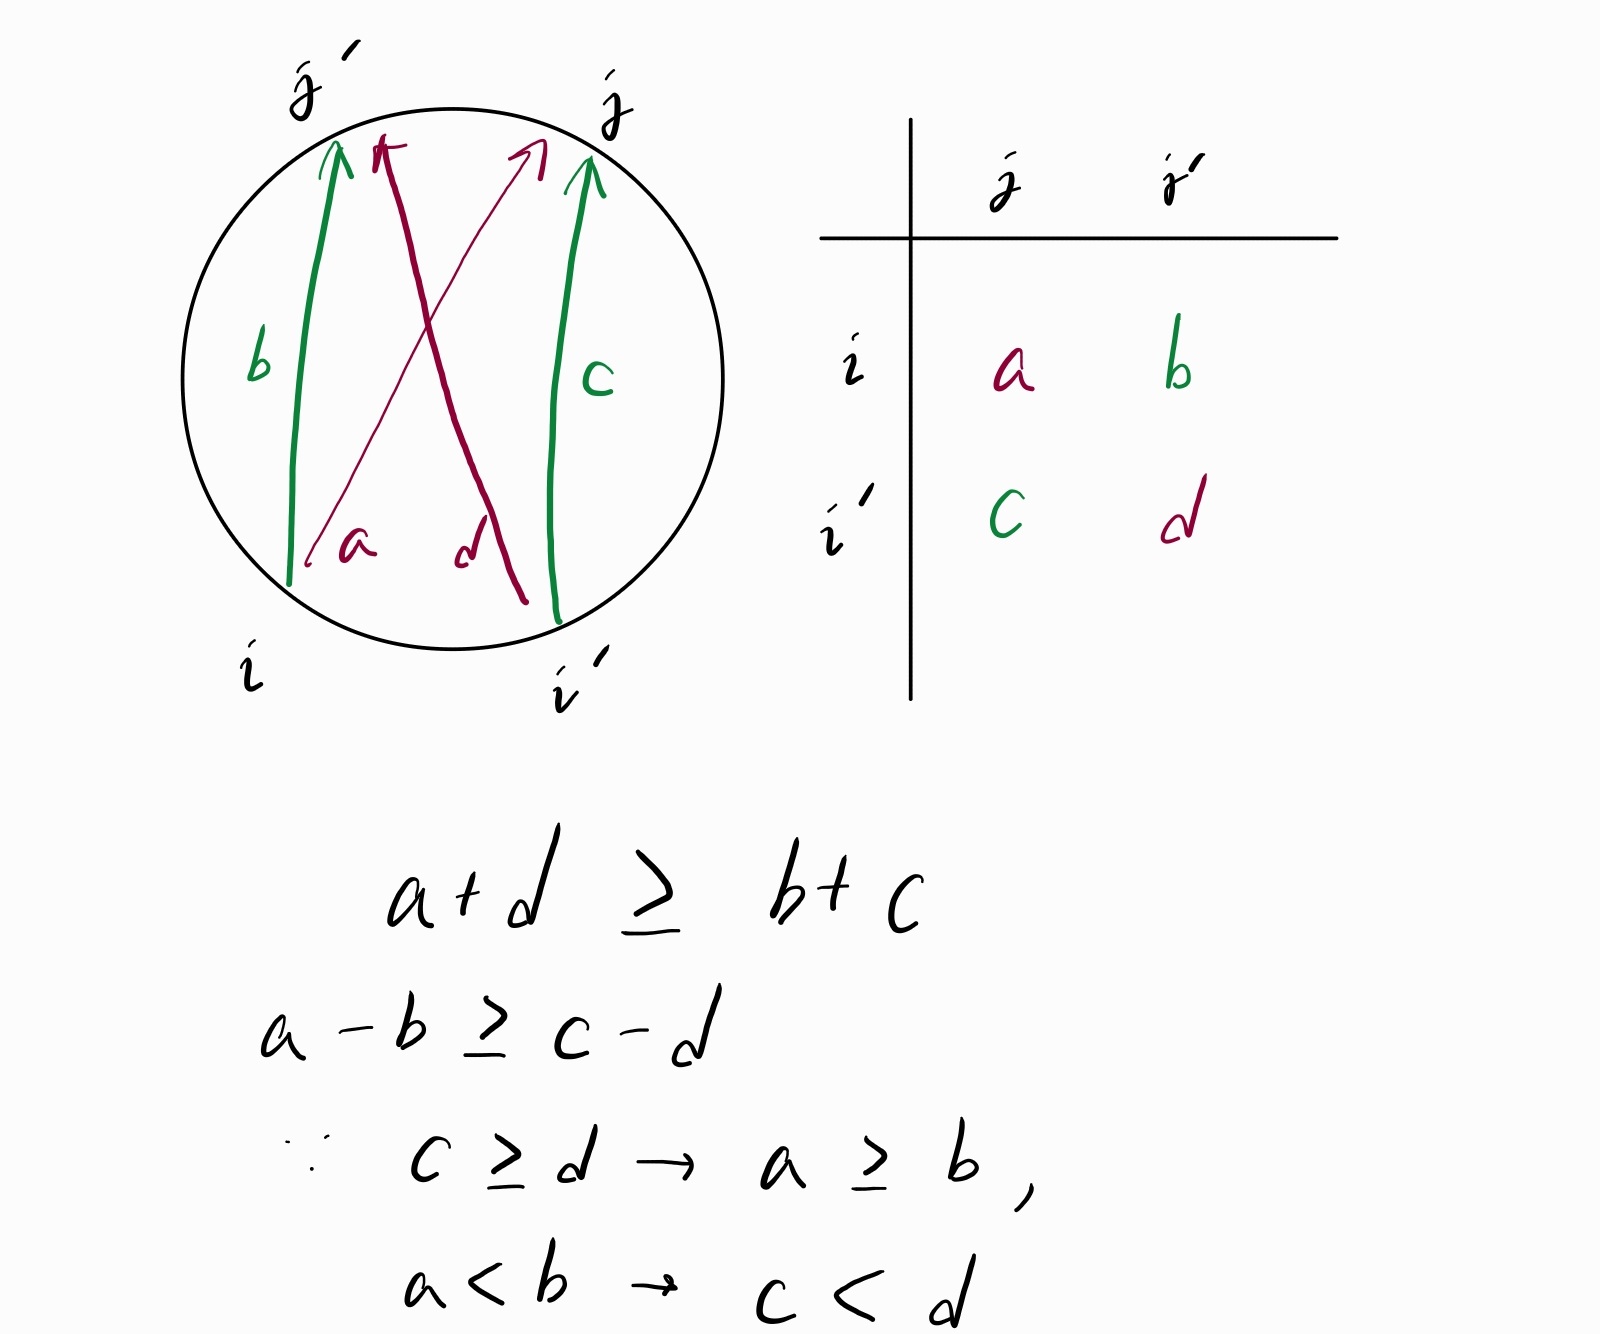 j′ j
b c
a d
i i′
j j′
i a b
i′ c d
a + d ≥ b + c
a − b ≥ c − d
∵ c ≥ d → a ≥ b ,
a < b → c < d